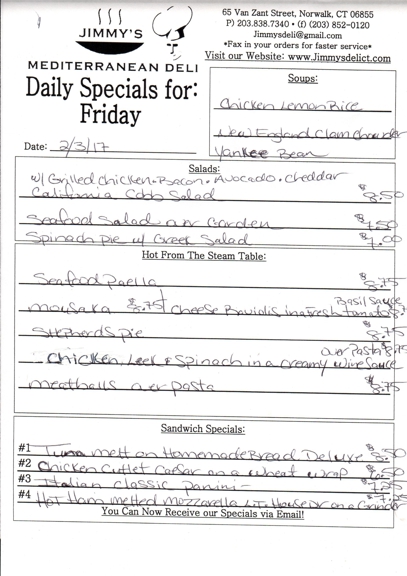 JIMMY'S
MEDITERRANEAN DELI
65 Van Zant Street, Norwalk, CT 06855
P) 203.838.7340 • (f) (203) 852-0120
Jimmysdeli@gmail.com
*Fax in your orders for faster service*
Visit our Website: www.Jimmysdelict.com
Daily Specials for:
Friday
Date: 2/3/17
Soups:
Chicken Lemon Rice
New England Clam Chowder
Yankee Bean
Salads:
w/ Grilled chicken • Bacon • Avocado • cheddar
California Cobb Salad $8.50
Seafood Salad over Garden $7.50
Spinach pie w/ Greek Salad $7.00
Hot From The Steam Table:
Seafood Paella $8.75
Basil Sauce
mousaka $8.75 cheese Raviolis in a fresh tomato
Shepherds pie $8.75
over Pasta 8.75
Chicken, Leek & Spinach in a creamy wine sauce
meatballs over pasta $8.75
Sandwich Specials:
#1 Tuna melt on Homemade Bread Deluxe
#2 Chicken Cutlet Caesar on a wheat wrap
#3 Italian Classic panini - $7.25
#4 Hot Ham melted mozzarella L.T. House Dr on a Grinder
You Can Now Receive our Specials via Email!